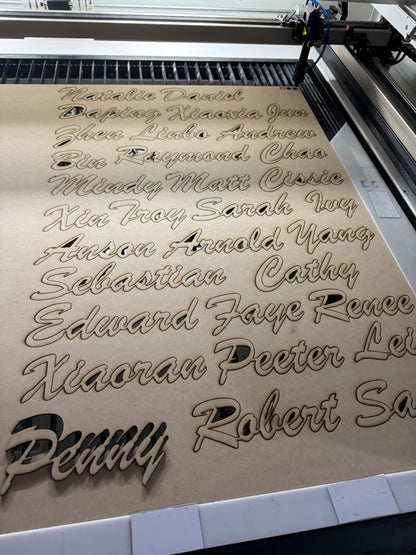 Natalie Daniel
Daping Xiaoxia Jun
Zhen Linbo Andrew
Bin Raymond Chao
Mindy Matt Cissie
Xin Troy Sarah Ivy
Anson Arnold Yang
Sebastian Cathy
Edward Faye Renee
Xiaoran Peeter Lei
Penny Robert Sa